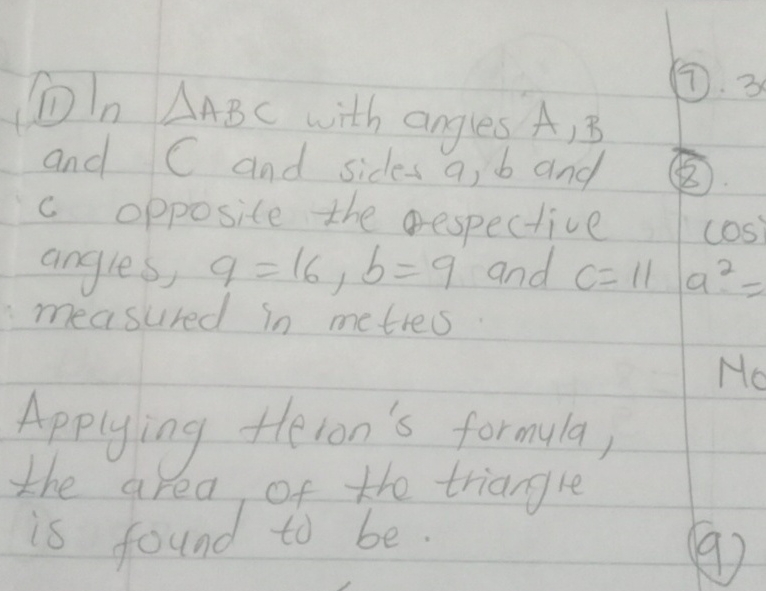 ⑪ In ΔABC with angles A, B
and C and sides a, b and
c opposite the respective
angles, a = 16, b = 9 and c = 11
measured in metres.
Applying Heron's formula,
the area of the triangle
is found to be.
⑦. 3
⑧.
cosi
a² =
No
⑨